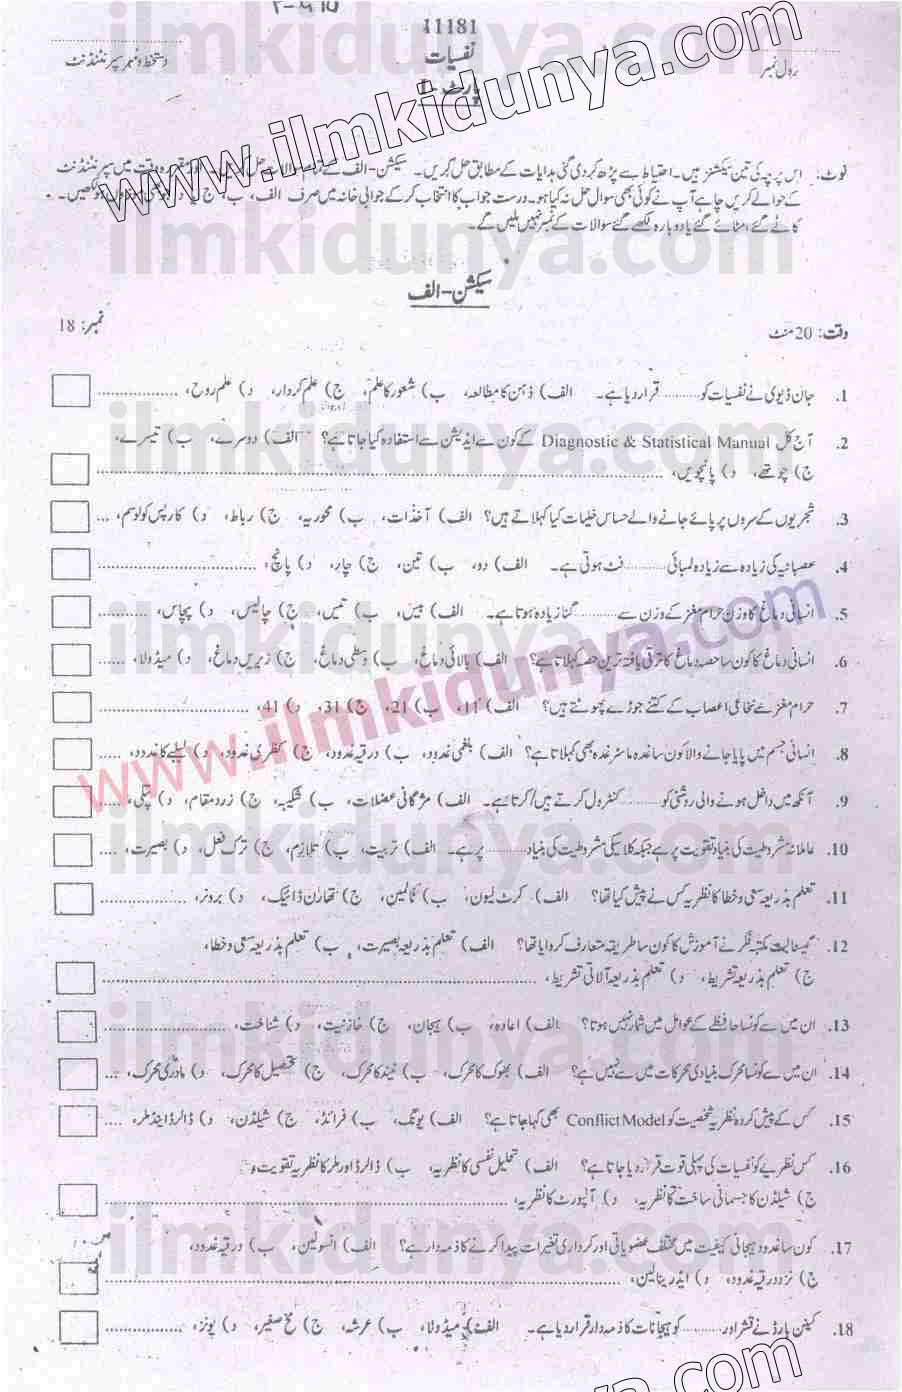 11181
رول نمبر
نفسیات
دستخط و مہر سپرنٹنڈنٹ
پارٹ-I
نوٹ: اس پرچہ کی تین سیکشنز ہیں۔ احتیاط سے پڑھ کر دی گئی ہدایات کے مطابق حل کریں۔ سیکشن-الف کے تمام سوالات حل کریں۔ اور مقررہ وقت میں سپرنٹنڈنٹ
کے حوالے کریں چاہے آپ نے کوئی بھی سوال حل نہ کیا ہو۔ درست جواب کا انتخاب کر کے جوابی خانہ میں صرف الف، ب، ج یا د لکھیں۔
کاٹے گئے، مٹائے گئے یا دوبارہ لکھے گئے سوالات کے نمبر نہیں ملیں گے۔
سیکشن-الف
وقت: 20 منٹ
نمبر: 18
1. جان ڈیوی نے نفسیات کو .......... قرار دیا ہے۔ الف) ذہن کا مطالعہ، ب) شعور کا علم، ج) علم کردار، د) علم روح، ..................
2. آج کل Diagnostic & Statistical Manual کے کون سے ایڈیشن سے استفادہ کیا جاتا ہے؟ الف) دوسرے، ب) تیسرے،
ج) چوتھے، د) پانچویں، ..................
3. شجریوں کے سروں پر پائے جانے والے حساس خلیات کیا کہلاتے ہیں؟ الف) آخذات، ب) محوریہ، ج) رباط، د) کارپس کولوسم، ...
4. عصبانیہ کی زیادہ سے زیادہ لمبائی .......... فٹ ہوتی ہے۔ الف) دو، ب) تین، ج) چار، د) پانچ، ..................
5. انسانی دماغ کا وزن حرام مغز کے وزن سے .......... گنا زیادہ ہوتا ہے۔ الف) بیس، ب) تیس، ج) چالیس، د) پچاس، ..........
6. انسانی دماغ کا کون سا حصہ دماغ کا ترقی یافتہ ترین حصہ کہلاتا ہے؟ الف) بالائی دماغ، ب) وسطی دماغ، ج) زیریں دماغ، د) میڈولا، ......
7. حرام مغز سے نخاعی اعصاب کے کتنے جوڑے پھوٹتے ہیں؟ الف) 11، ب) 21، ج) 31، د) 41، ..................
8. انسانی جسم میں پایا جانے والا کون سا غدہ ماسٹر غدہ بھی کہلاتا ہے؟ الف) بلغمی غدود، ب) درقیہ غدود، ج) کظری غدود، د) لبلبے کا غدود، .....
9. آنکھ میں داخل ہونے والی روشنی کو .......... کنٹرول کرتے ہیں/کرتا ہے۔ الف) مژگانی عضلات، ب) شبکیہ، ج) زرد مقام، د) پتلی، .....
10. عاملانہ مشروطیت کی بنیاد تقویت پر ہے جبکہ کلاسیکی مشروطیت کی بنیاد .......... پر ہے۔ الف) تربیت، ب) تلازم، ج) ترک فعل، د) بصیرت، ....
11. تعلم بذریعہ سعی و خطا کا نظریہ کس نے پیش کیا تھا؟ الف) کرٹ لیون، ب) ٹالمین، ج) تھارن ڈائیک، د) برونر، ..................
12. گیسٹالٹ مکتبہ فکر نے آموزش کا کون سا طریقہ متعارف کروایا تھا؟ الف) تعلم بذریعہ بصیرت، ب) تعلم بذریعہ سعی و خطا،
ج) تعلم بذریعہ تشریط، د) تعلم بذریعہ آلاتی تشریط، ..................
13. ان میں سے کونسا حافظے کے عوامل میں شمار نہیں ہوتا؟ الف) اعادہ، ب) ہیجان، ج) خازنیت، د) شناخت، ..................
14. ان میں سے کونسا محرک بنیادی محرکات میں سے نہیں ہے؟ الف) بھوک کا محرک، ب) نیند کا محرک، ج) تحصیل کا محرک، د) مادری محرک، ...
15. کس کے پیش کردہ نظریہ شخصیت کو Conflict Model بھی کہا جاتا ہے؟ الف) یونگ، ب) فرائڈ، ج) شیلڈن، د) ڈالرڈ اینڈ ملر، ....
16. کس نظریے کو نفسیات کی پہلی قوت قرار دیا جاتا ہے؟ الف) تحلیل نفسی کا نظریہ، ب) ڈالرڈ اور ملر کا نظریہ تقویت و
ج) شیلڈن کا جسمانی ساخت کا نظریہ، د) آلپورٹ کا نظریہ، ..................
17. کون سا غدود ہیجانی کیفیت میں مختلف عضویاتی اور کرداری تغیرات پیدا کرنے کا ذمہ دار ہے؟ الف) انسولین، ب) درقیہ غدود،
ج) نزد درقیہ غدود، د) ایڈرینالین، ..................
18. کینن بارڈ نے قشر اور .......... کو ہیجانات کا ذمہ دار قرار دیا ہے۔ الف) میڈولا، ب) عرشہ، ج) مخ صغیر، د) پونز، ..................
www.ilmkidunya.com
www.ilmkidunya.com
ilmkidunya.com
ilmkidunya.com
ilmkidunya.com
ilmkidunya.com
ilmkidunya.com
ilmkidunya.com
ilmkidunya.com
ilmkidunya.com